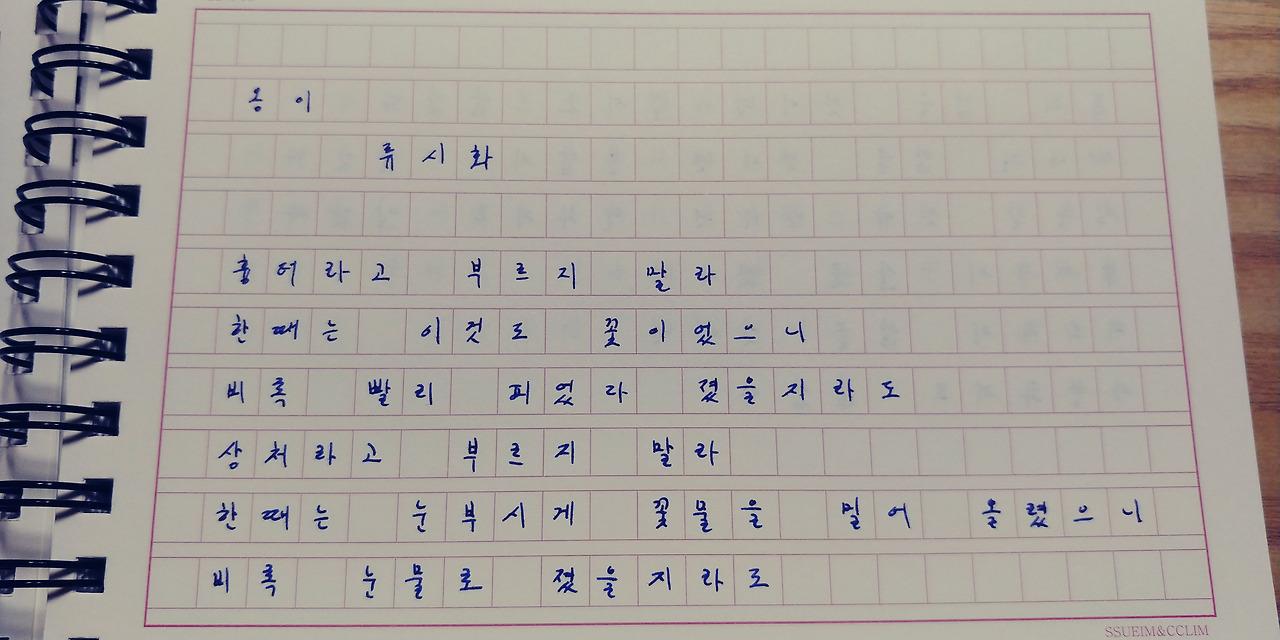 옹이
류시화
흉터라고 부르지 말라
한때는 이것도 꽃이었으니
비록 빨리 피었다 졌을지라도
상처라고 부르지 말라
한때는 눈부시게 꽃물을 밀어 올렸으니
비록 눈물로 졌을지라도
SSUEIM&CCLIM